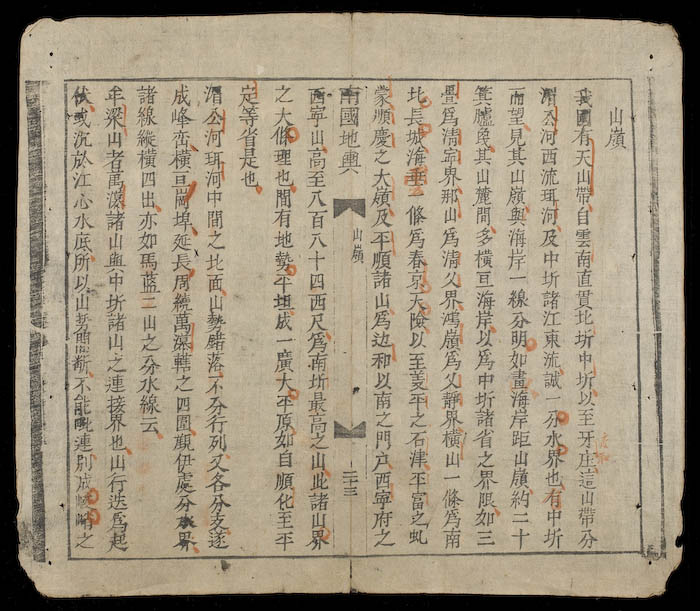 山嶺
我國有天山帶自雲南直貫北圻中圻以至牙庄這山帶分
湄公河西流珥河及中圻諸江東流誠一分水界也有中圻
而望見其山嶺與海岸一線分明如畫海岸距山嶺約二十
箕臚民其山麓間多橫亘海岸以爲中圻諸省之界限如三
疊爲清寧界那山爲清乂界鴻嶺爲乂靜界橫山一條爲南
北長城海垂一條爲春京天險以至姜平之石津平富之虬
蒙順慶之大嶺及平順諸山爲边和以南之門户西寧府之
南國地輿
山嶺
二十三
西寧山高至八百八十四西尺爲南圻最高之山此諸山界
之大條理也間有地勢平坦成一廣大平原如自順化至平
定等省是也
湄公河珥河中間之北面山勢錯落不分行列又各分支遂
成峰峦橫亘崗埠延長周繞萬深轄之四圍觀伊處分水界
諸線縱橫四出亦如馬藍二山之分水線云
牟梁山者萬深諸山與中圻諸山之連接界也山行迭爲起
伏或沉於江心水底所以山勢間斷不能毗連別成峻峭之